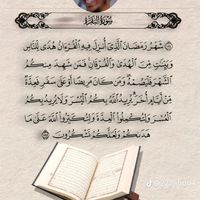 سُورَةُ البَقَرَةِ
شَهْرُ رَمَضَانَ ٱلَّذِىٓ أُنزِلَ فِيهِ ٱلْقُرْءَانُ هُدًى لِّلنَّاسِ
وَبَيِّنَٰتٍ مِّنَ ٱلْهُدَىٰ وَٱلْفُرْقَانِ فَمَن شَهِدَ مِنكُمُ
ٱلشَّهْرَ فَلْيَصُمْهُ وَمَن كَانَ مَرِيضًا أَوْ عَلَىٰ سَفَرٍ فَعِدَّةٌ
مِّنْ أَيَّامٍ أُخَرَ يُرِيدُ ٱللَّهُ بِكُمُ ٱلْيُسْرَ وَلَا يُرِيدُ بِكُمُ
ٱلْعُسْرَ وَلِتُكْمِلُوا۟ ٱلْعِدَّةَ وَلِتُكَبِّرُوا۟ ٱللَّهَ عَلَىٰ مَا
هَدَىٰكُمْ وَلَعَلَّكُمْ تَشْكُرُونَ